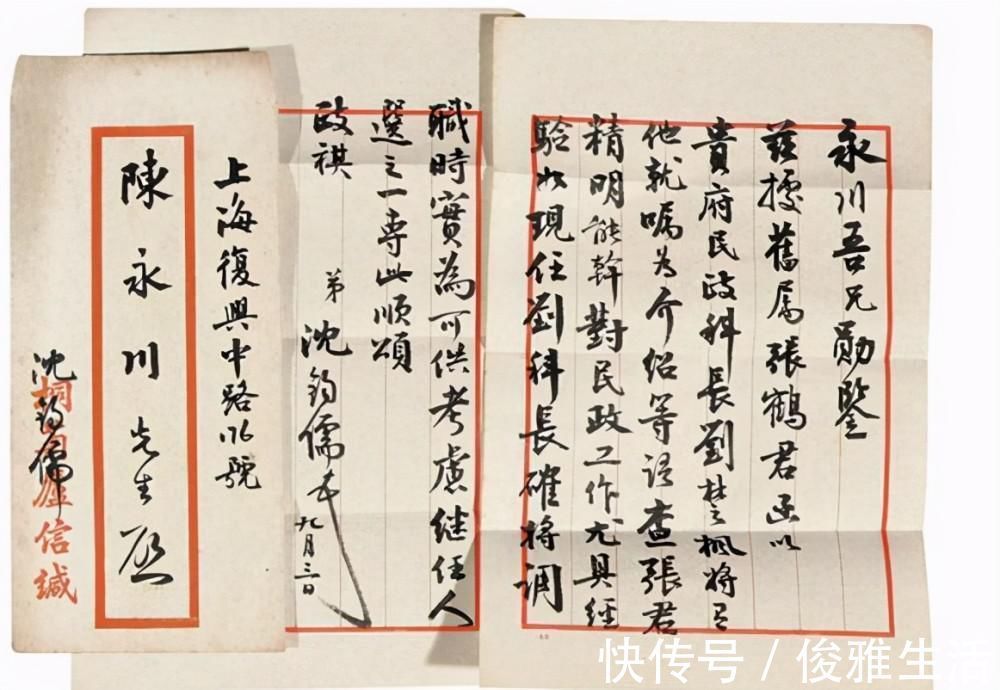 永川吾兄勛鑒
茲據舊属張鶴君函以
貴府民政科長劉楚楓将
他就嘱为介绍等语查張君
精明能幹對民政工作尤具經
驗如現任劉科長確将調
職時實為可供考慮继任人
選之一專此順頌
政祺
弟 沈鈞儒
九月三日
上海復興中路 號
陳永川先生啟
沈鈞儒
桐 廬信緘
快传号 / 俊雅生活